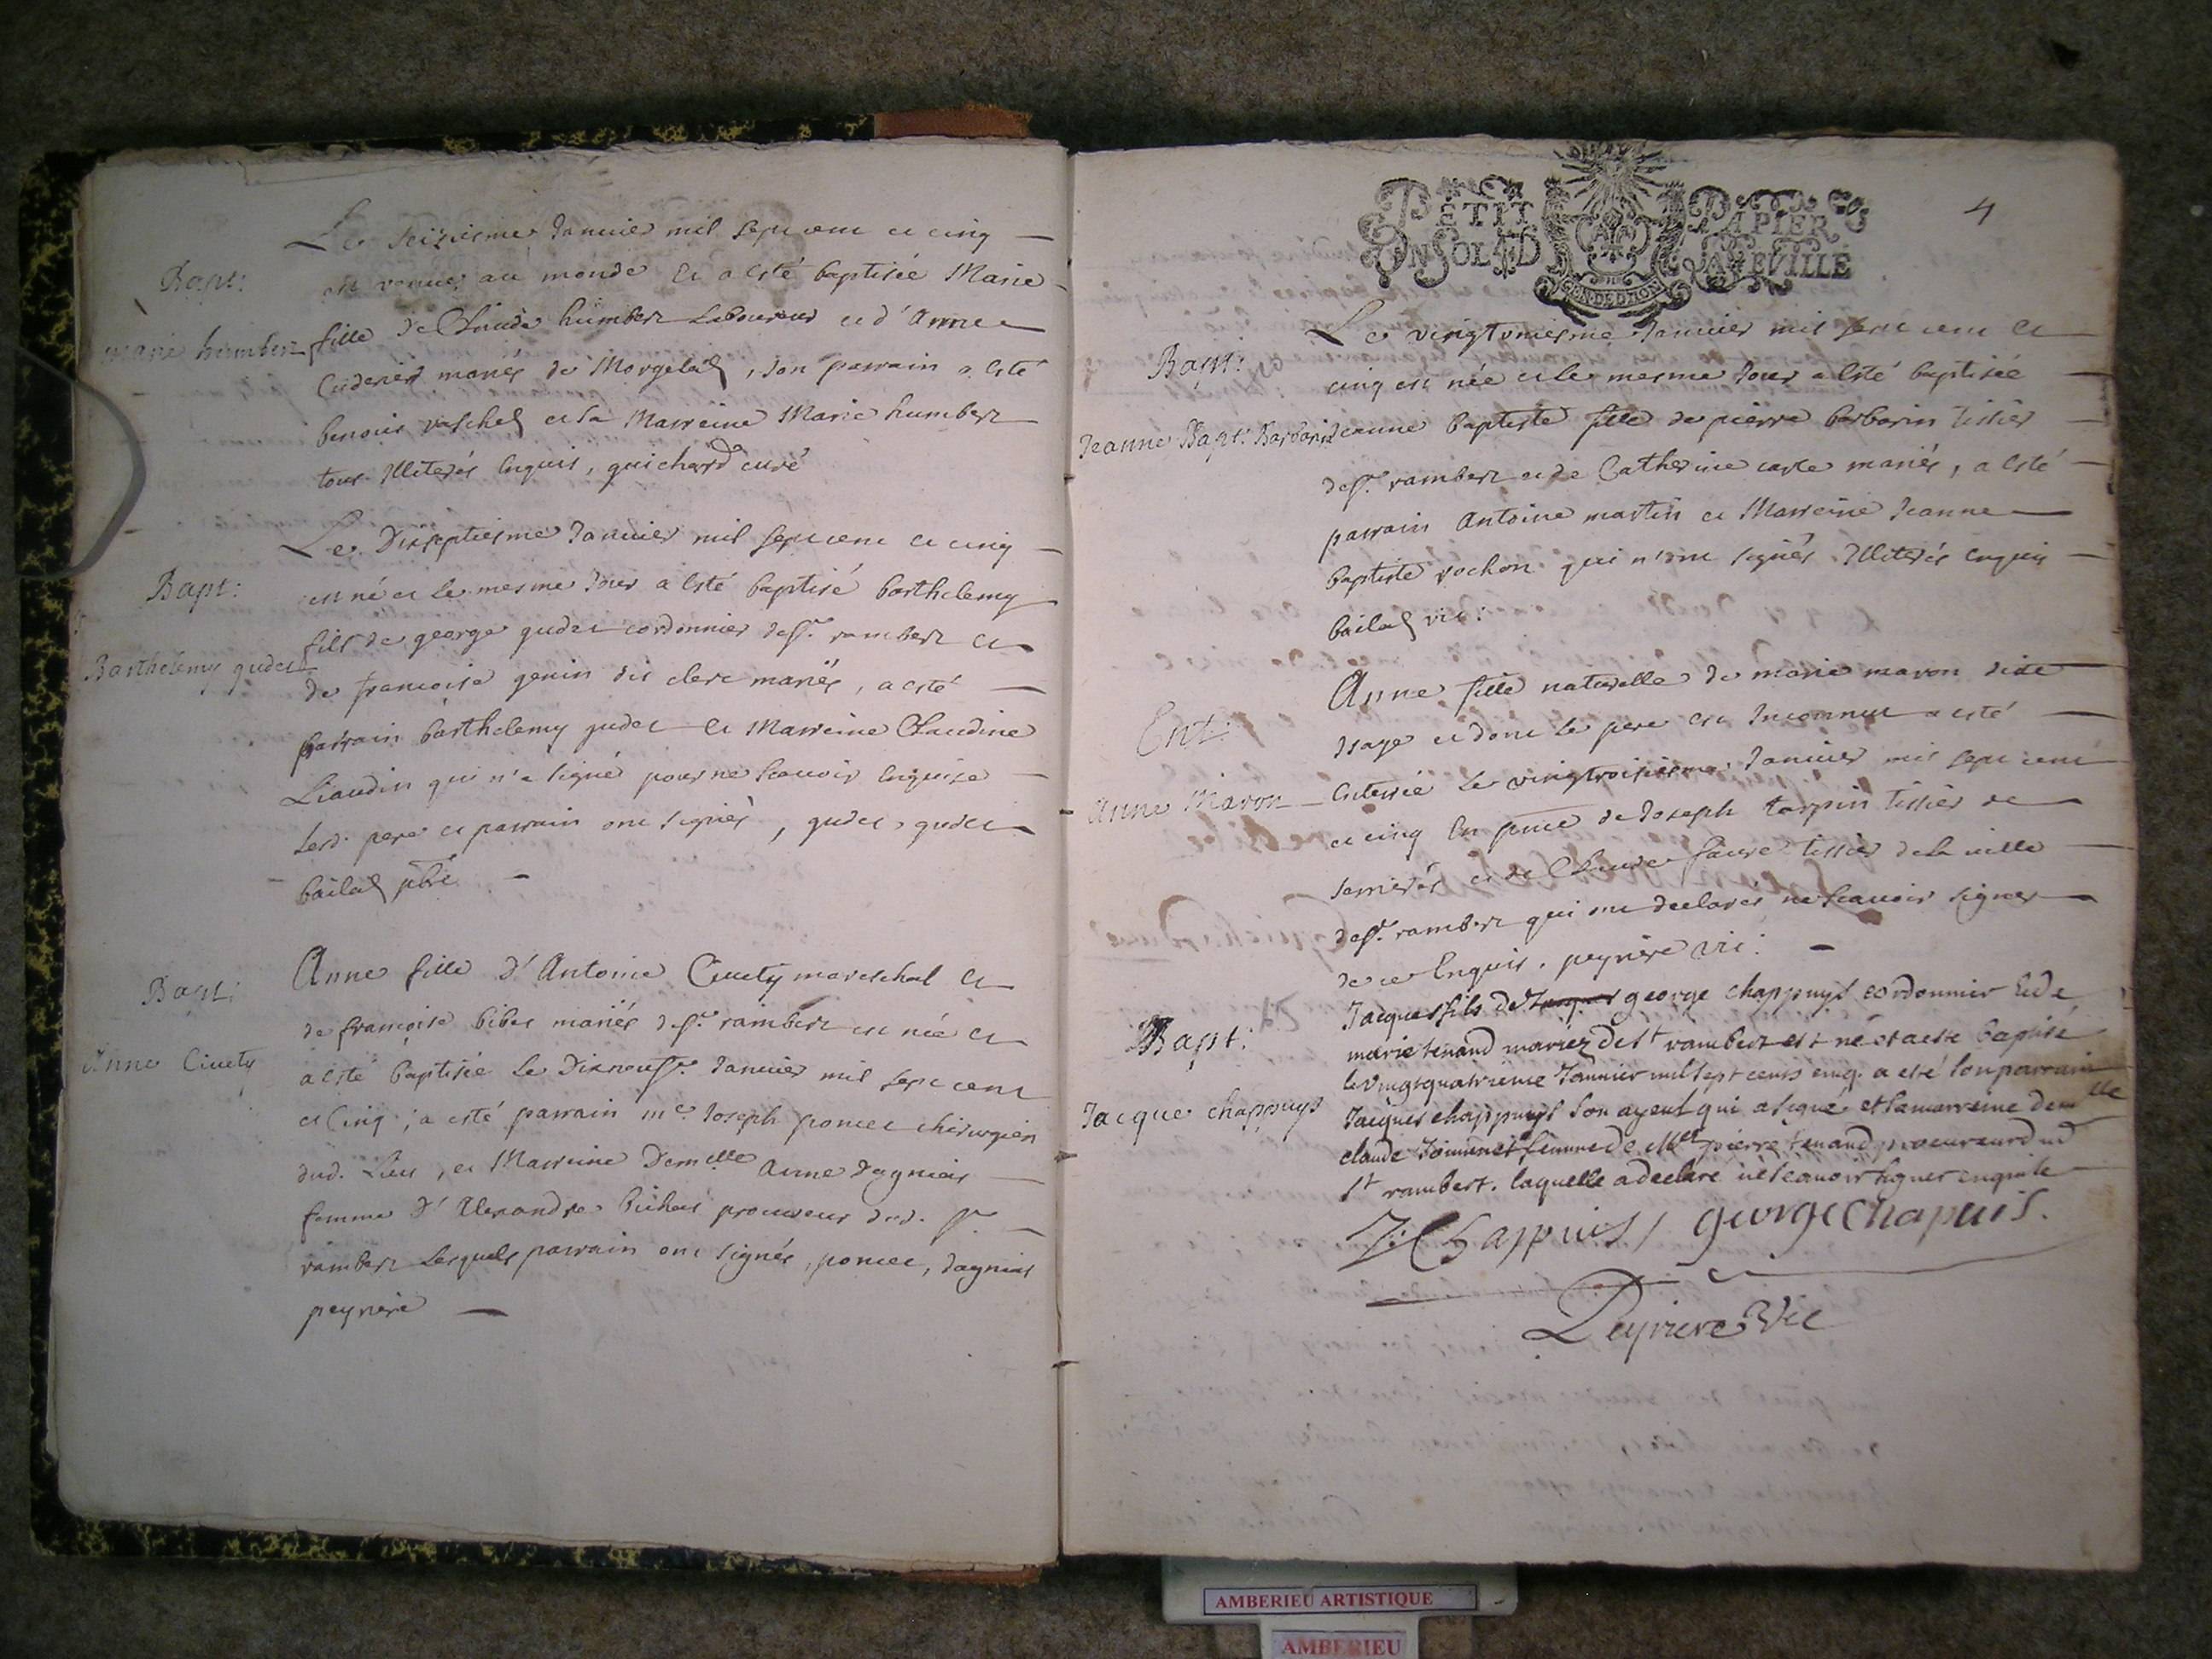 Le seiziesme Janvier mil sept cent et cinq
Bapt:
est venue au monde et a esté baptisée Marie
marie humbert
fille de Claude humbert Laboureur et d'Anne
mariés de Morgelas, son parrain a esté
benoit vaschel et sa Marreine Marie humbert
tous Illiterés Enquis, guichard curé
Le Dixseptiesme Janvier mil sept cent et cinq
Bapt:
est né et le mesme Jour a esté baptisé barthelemy
Barthelemy gudet
fils de george gudet cordonnier de St. rambert et
de francoise genin dit clerc mariés, a esté
parrain barthelemy gudet et Marreine Claudine
Liaudin qui n'a signé pour ne scavoir Enquise
led. pere et parrain ont signés, gudet, gudet
bailad pbre
Bapt:
Anne fille d'Antoine Civety mareschal et
de françoise bibet mariés de St. rambert est née et
Anne Civety
a esté baptisée le Dixneufe. Janvier mil sept cent
et Cinq, a esté parrain me Joseph poncet chirurgien
dud. Lieu, et Marreine Demelle Anne dagniat
femme d'Alexandre bichat procureur dud. St.
rambert Lesquels parrain ont signés, poncet, dagniat
peyriere
4
PETIT PAPIER
UN SOL LES D LA FEVILLE
GEN DE DIJON
Le vingtuniesme Janvier mil sept cent et
Bapt:
cinq est née et le mesme Jour a esté baptisée
Jeanne Bapt: Barbarin
Jeanne baptiste fille de pierre barbarin tissier
de St. rambert et de Catherine carte mariés, a esté
parrain Antoine martin et Marreine Jeanne
baptiste rochon qui n'ont signés Illiterés enquis
bailad vic:
Anne fille naturelle de marie maron dite
Ent:
Isaye et dont le pere est Inconnu a esté
Anne Maron
enterrée le vingtroisiesme Janvier mil sept cent
et cinq en pnce de Joseph tarpin tissier de
et de Claude faure tissier de la ville
de St. rambert qui ont declarés ne scavoir signer
de ce Enquis. peyriere vic:
Bapt:
Jacques fils de Jacques george chappuys cordonnier et de
marie tenand mariéz de St rambert est né et a esté baptisé
le vingtquatrieme Jannier mil sept cents cinq. a esté son parrain
Jacque chappuys
Jacques chappuys son ayeul qui a signé et sa marreine demelle
claude Joinnet femme de Met pierre tenand procureur dud
St rambert. laquelle a declaré ne scavoir signer enquise
J: Chappuis / george Chapuis.
Peyriere Vic
AMBERIEU ARTISTIQUE
AMBERIEU